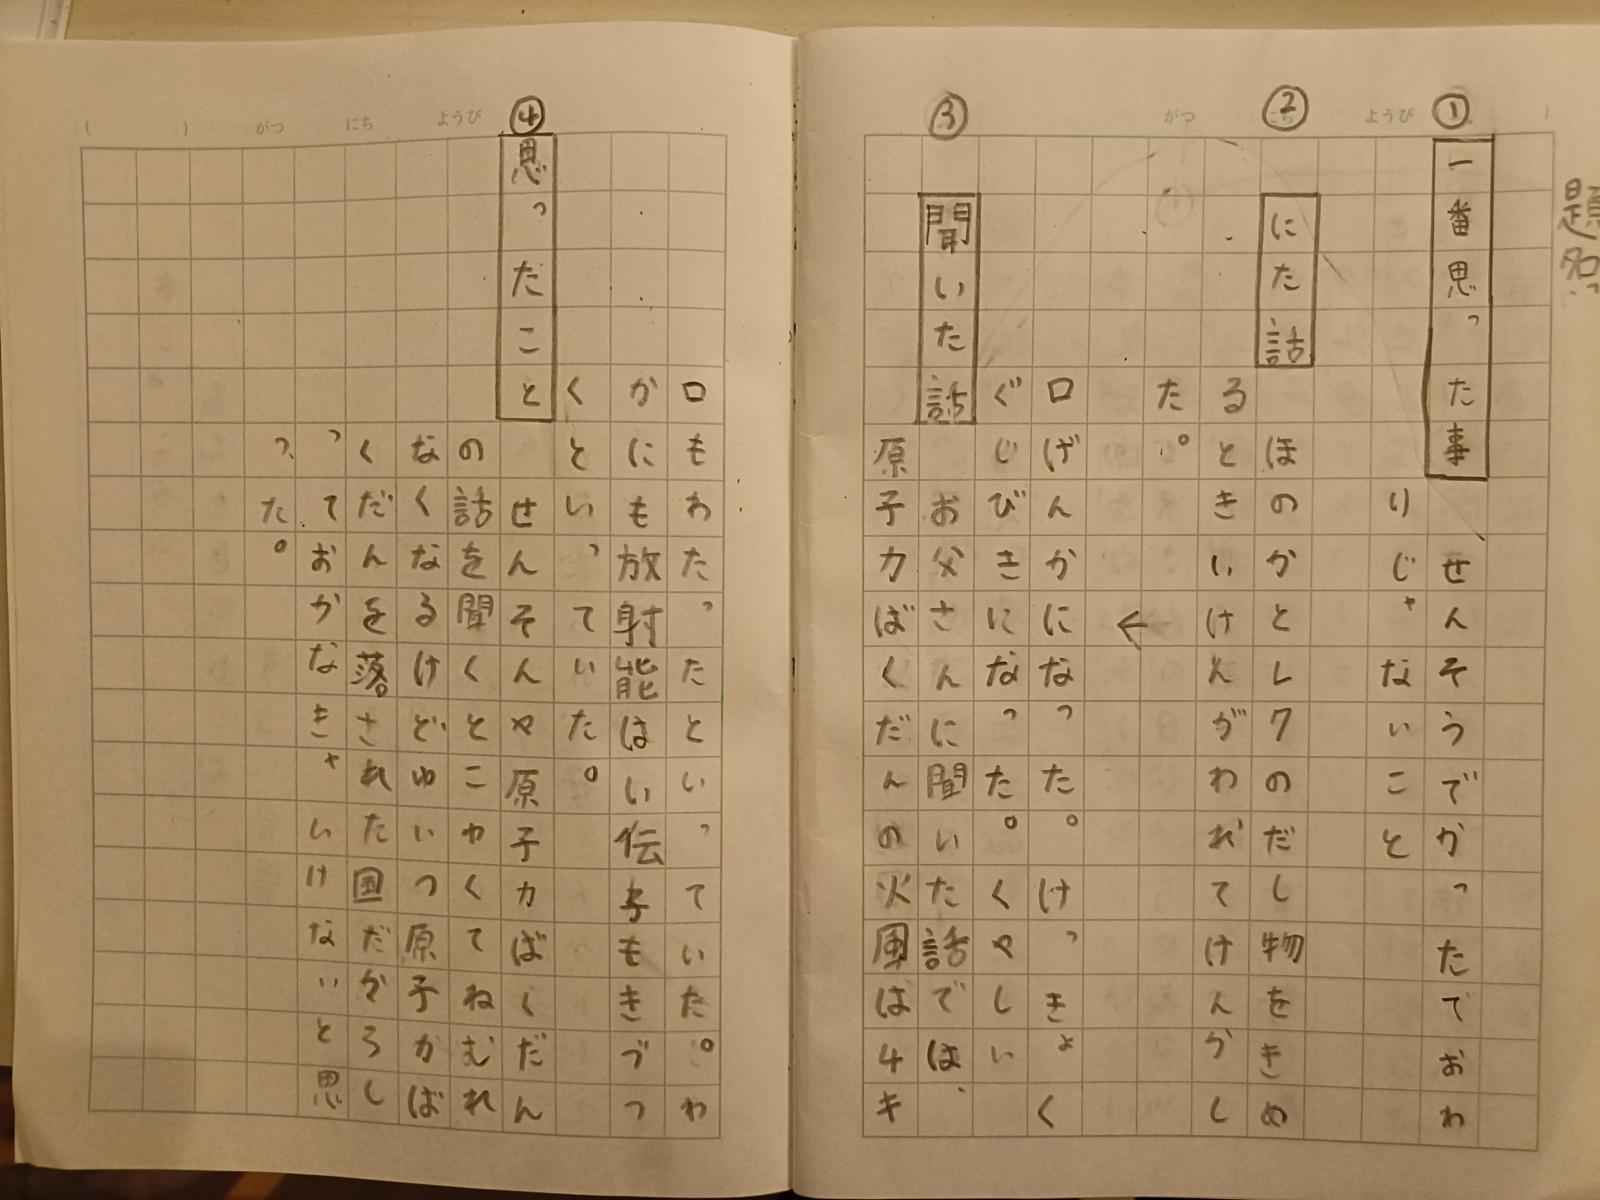 題名
① 一番思った事 せんそうでかったでおわ
りじゃないこと
② にた話 ほのかとレクのだし物をきめ
るときいけんがわれてけんかし
た。
←
口げんかになった。けっきょく
ぐじびきになった。くやしい
③ 聞いた話 お父さんに聞いた話では、
原子力ばくだんの火風は4キ
ロもわたったといっていた。わ
かにも放射能はい伝子もきづつ
くといっていた。
④ 思ったこと せんそんや原子力ばくだん
の話を聞くとこわくてねむれ
なくなるけどゆいつ原子力ば
くだんを落された国だからし
っておかなきゃいけないと思
った。
ようび
がつ
ようび
にち
がつ